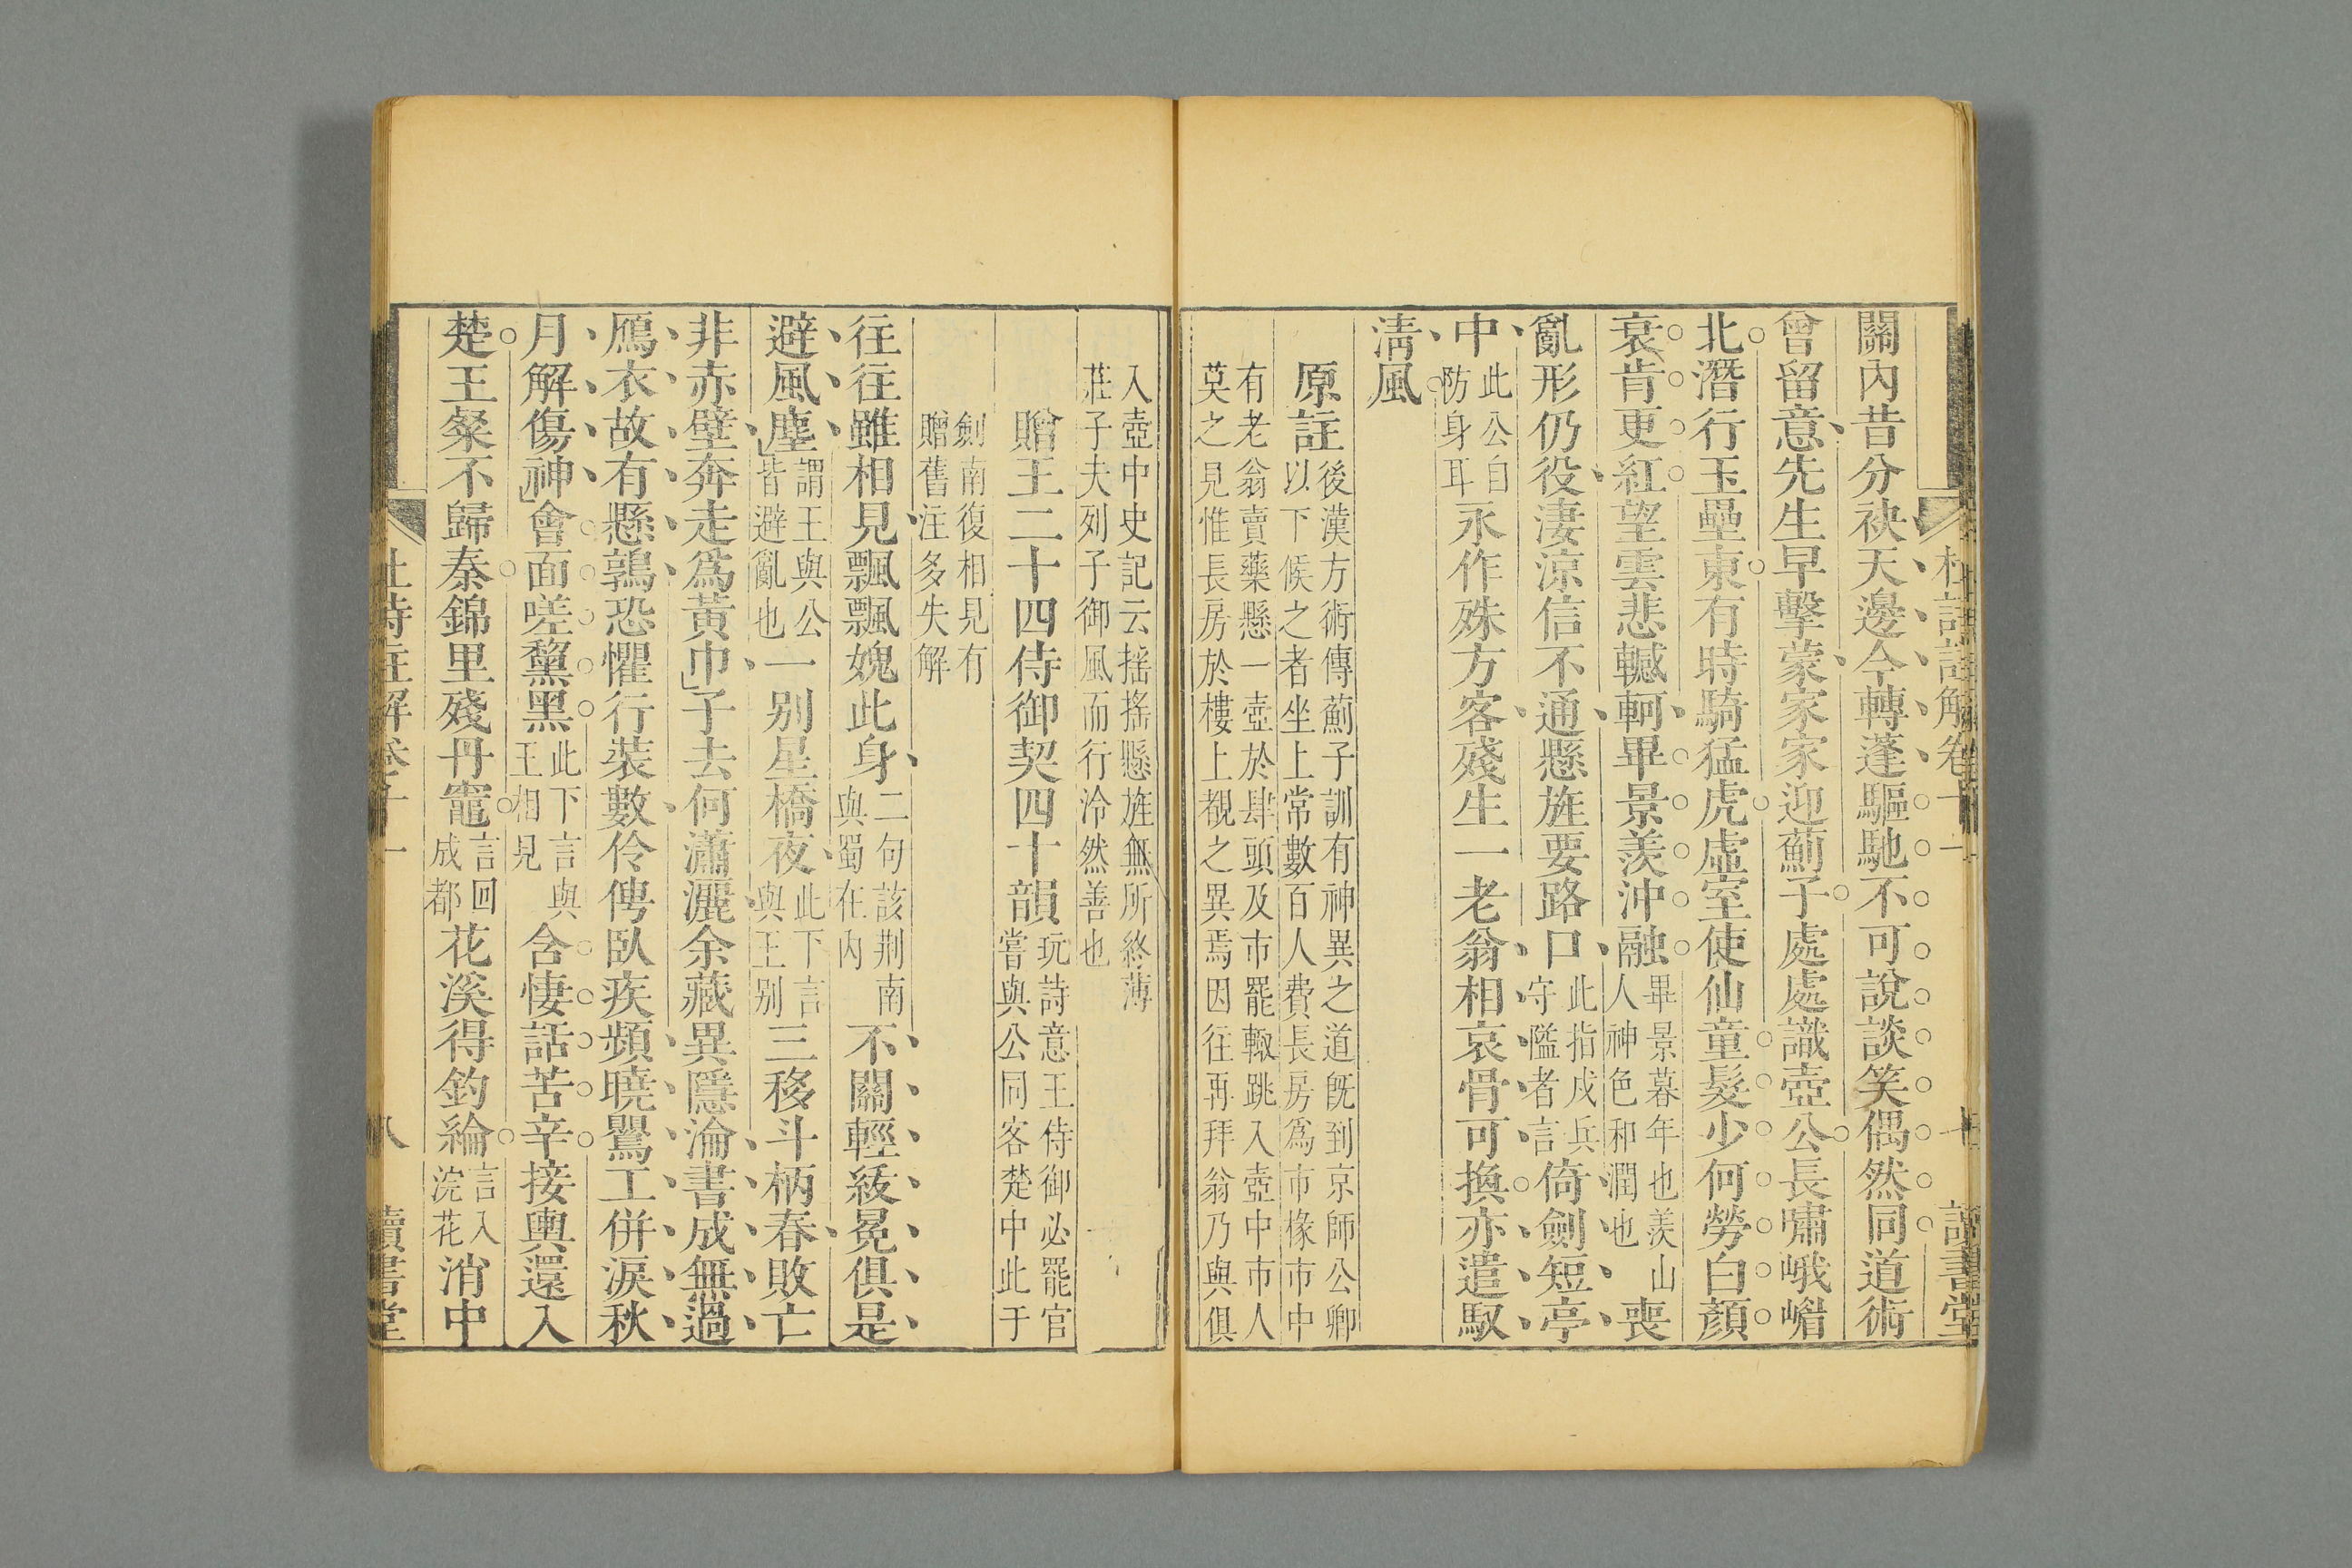 杜詩註解卷十一
七
讀書堂
關內昔分袂天邊今轉蓬驅馳不可說談笑偶然同道術
曾留意先生早擊蒙家家迎薊子處處識壺公長嘯峨嵋
北潛行玉壘東有時騎猛虎虛室使仙童髮少何勞白顏
衰肯更紅望雲悲轗軻畢景羨沖融
畢景暮年也羨山
人神色和潤也
喪
亂形仍役淒涼信不通懸旌要路口
此指戍兵
守隘者言
倚劍短亭
中
此公自
防身耳
永作殊方客殘生一老翁相哀骨可換亦遣馭
淸風
原註
後漢方術傳薊子訓有神異之道旣到京師公卿
以下候之者坐上常數百人費長房爲市椽市中
有老翁賣藥懸一壺於肆頭及市罷輙跳入壺中市人
莫之見惟長房於樓上覩之異焉因往再拜翁乃與俱
入壺中史記云搖搖懸旌無所終薄
莊子夫列子御風而行泠然善也
贈王二十四侍御契四十韻
玩詩意王侍御必罷官
嘗與公同客楚中此于
劍南復相見有
贈舊注多失解
往往雖相見飄飄媿此身
二句該荆南
與蜀在內
不關輕紱冕俱是
避風塵
謂王與公
皆避亂也
一別星橋夜
此下言
與王別
三移斗柄春敗亡
非赤壁奔走爲黃巾子去何瀟灑余藏異隱淪書成無過
鴈衣故有懸鶉恐懼行裝數伶俜臥疾頻曉鸎工併淚秋
月解傷神會面嗟黧黑
此下言與
王相見
含悽話苦辛接輿還入
楚王粲不歸秦錦里殘丹竈
言回
成都
花溪得釣綸
言入
浣花
消中
杜詩註解卷十一
八
讀書堂